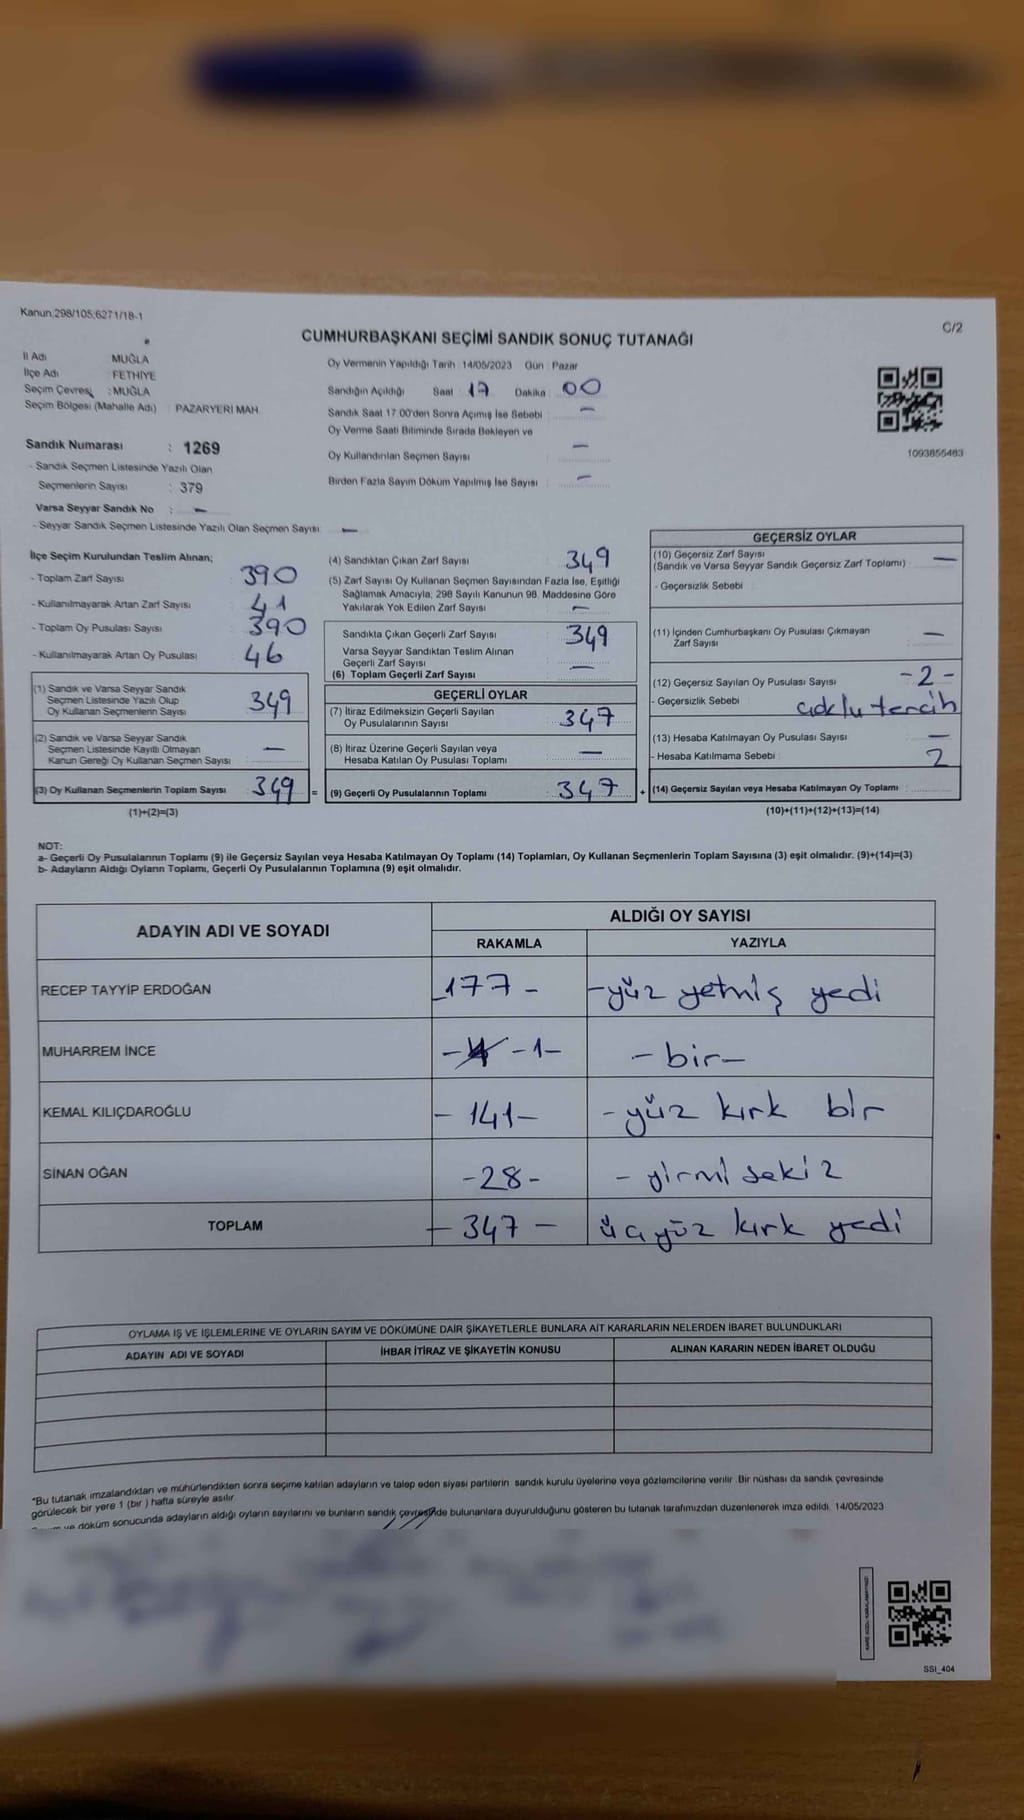 Kanun;298/105;6271/18-1
C/2
CUMHURBAŞKANI SEÇİMİ SANDIK SONUÇ TUTANAĞI
İl Adı : MUĞLA
İlçe Adı : FETHİYE
Seçim Çevresi : MUĞLA
Seçim Bölgesi (Mahalle Adı) : PAZARYERİ MAH.
Oy Vermenin Yapıldığı Tarih : 14/05/2023 Gün : Pazar
Sandığın Açıldığı Saat : 17 Dakika : 00
Sandık Saat 17.00'den Sonra Açımış İse Sebebi : -
Oy Verme Saati Bitiminde Sırada Bekleyen ve
Oy Kullandırılan Seçmen Sayısı : -
Birden Fazla Sayım Döküm Yapılmış İse Sayısı : -
1093855483
Sandık Numarası : 1269
- Sandık Seçmen Listesinde Yazılı Olan
Seçmenlerin Sayısı : 379
Varsa Seyyar Sandık No : -
- Seyyar Sandık Seçmen Listesinde Yazılı Olan Seçmen Sayısı : -
İlçe Seçim Kurulundan Teslim Alınan;
- Toplam Zarf Sayısı : 390
- Kullanılmayarak Artan Zarf Sayısı : 41
- Toplam Oy Pusulası Sayısı : 390
- Kullanılmayarak Artan Oy Pusulası : 46
(1) Sandık ve Varsa Seyyar Sandık
Seçmen Listesinde Yazılı Olup
Oy Kullanan Seçmenlerin Sayısı : 349
(2) Sandık ve Varsa Seyyar Sandık
Seçmen Listesinde Kayıtlı Olmayan
Kanun Gereği Oy Kullanan Seçmen Sayısı : -
(3) Oy Kullanan Seçmenlerin Toplam Sayısı : 349 =
(1)+(2)=(3)
(4) Sandıktan Çıkan Zarf Sayısı : 349
(5) Zarf Sayısı Oy Kullanan Seçmen Sayısından Fazla İse, Eşitliği
Sağlamak Amacıyla; 298 Sayılı Kanunun 98. Maddesine Göre
Yakılarak Yok Edilen Zarf Sayısı : -
Sandıkta Çıkan Geçerli Zarf Sayısı : 349
Varsa Seyyar Sandıktan Teslim Alınan
Geçerli Zarf Sayısı : -
(6) Toplam Geçerli Zarf Sayısı
GEÇERLİ OYLAR
(7) İtiraz Edilmeksizin Geçerli Sayılan
Oy Pusulalarının Sayısı : 347
(8) İtiraz Üzerine Geçerli Sayılan veya
Hesaba Katılan Oy Pusulası Toplamı : -
(9) Geçerli Oy Pusulalarının Toplamı : 347 +
GEÇERSİZ OYLAR
(10) Geçersiz Zarf Sayısı
(Sandık ve Varsa Seyyar Sandık Geçersiz Zarf Toplamı) : -
- Geçersizlik Sebebi :
(11) İçinden Cumhurbaşkanı Oy Pusulası Çıkmayan
Zarf Sayısı : -
(12) Geçersiz Sayılan Oy Pusulası Sayısı : -2-
- Geçersizlik Sebebi : çoklu tercih
(13) Hesaba Katılmayan Oy Pusulası Sayısı : -
- Hesaba Katılmama Sebebi : 2
(14) Geçersiz Sayılan veya Hesaba Katılmayan Oy Toplamı :
(10)+(11)+(12)+(13)=(14)
NOT:
a- Geçerli Oy Pusulalarının Toplamı (9) ile Geçersiz Sayılan veya Hesaba Katılmayan Oy Toplamı (14) Toplamları, Oy Kullanan Seçmenlerin Toplam Sayısına (3) eşit olmalıdır. (9)+(14)=(3)
b- Adayların Aldığı Oyların Toplamı, Geçerli Oy Pusulalarının Toplamına (9) eşit olmalıdır.
ADAYIN ADI VE SOYADI
ALDIĞI OY SAYISI
RAKAMLA YAZIYLA
RECEP TAYYİP ERDOĞAN -177- -yüz yetmiş yedi
MUHARREM İNCE -1- -bir-
KEMAL KILIÇDAROĞLU -141- -yüz kırk bir
SİNAN OĞAN -28- -yirmi sekiz
TOPLAM -347- üçyüz kırk yedi
OYLAMA İŞ VE İŞLEMLERİNE VE OYLARIN SAYIM VE DÖKÜMÜNE DAİR ŞİKAYETLERLE BUNLARA AİT KARARLARIN NELERDEN İBARET BULUNDUKLARI
ADAYIN ADI VE SOYADI İHBAR İTİRAZ VE ŞİKAYETİN KONUSU ALINAN KARARIN NEDEN İBARET OLDUĞU
*Bu tutanak imzalandıktan ve mühürlendikten sonra seçime katılan adayların ve talep eden siyasi partilerin sandık kurulu üyelerine veya gözlemcilerine verilir. Bir nüshası da sandık çevresinde
görülecek bir yere 1 (bir ) hafta süreyle asılır.
ve döküm sonucunda adayların aldığı oyların sayılarını ve bunların sandık çevresinde bulunanlara duyurulduğunu gösteren bu tutanak tarafımızdan düzenlenerek imza edildi. 14/05/2023
SSI_404